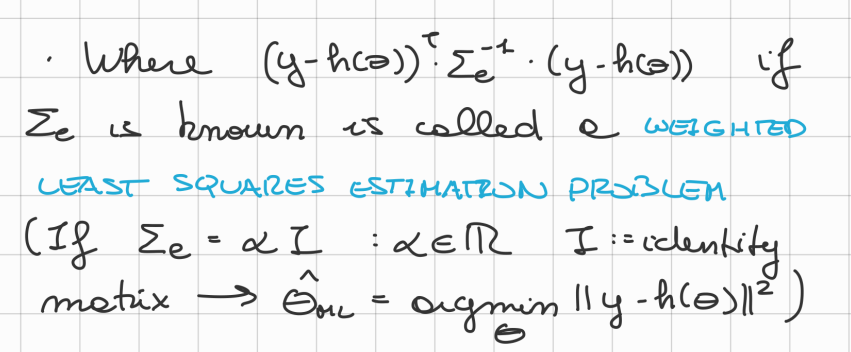 · Where (y-h(θ))ᵀ · Σₑ⁻¹ · (y-h(θ)) if
Σₑ is known is called a WEIGHTED
LEAST SQUARES ESTIMATION PROBLEM
(If Σₑ = α I : α ∈ ℝ I := identity
matrix → θ̂_ML = argmin_θ ||y-h(θ)||²)